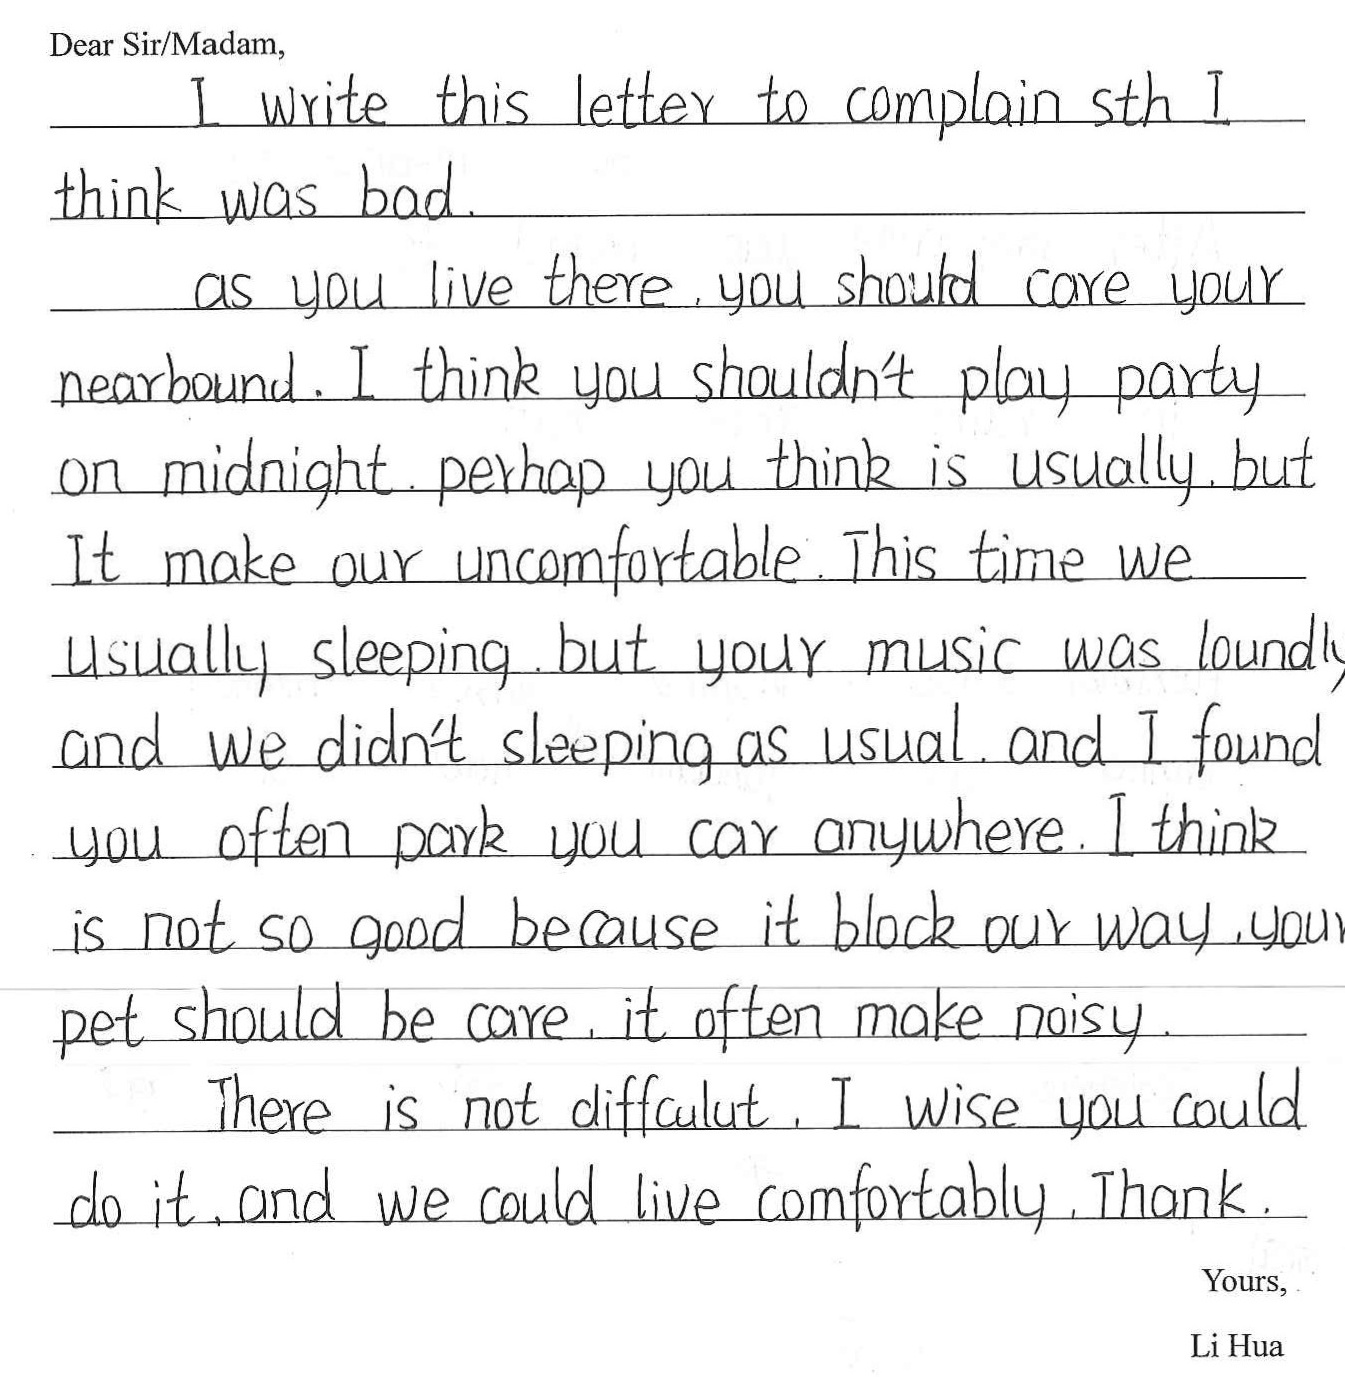 Dear Sir/Madam,
I write this letter to complain sth I
think was bad.
as you live there, you should care your
nearbound. I think you shouldn't play party
on midnight. perhap you think is usually, but
It make our uncomfortable. This time we
usually sleeping. but your music was loundly
and we didn't sleeping as usual. and I found
you often park you car anywhere. I think
is not so good because it block our way, your
pet should be care, it often make noisy.
There is not diffculut, I wise you could
do it, and we could live comfortably, Thank.
Yours,
Li Hua